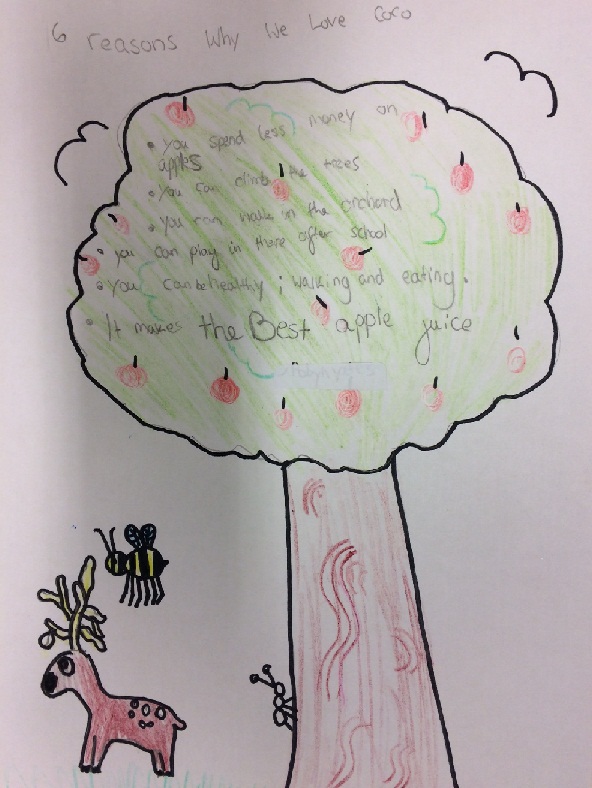 6 reasons Why We Love Coco
• you spend less money on
apples
• You can climb the trees
• You can walk in the orchard
• you can play in there after school
• you can be healthy ; walking and eating.
• It makes the Best apple juice